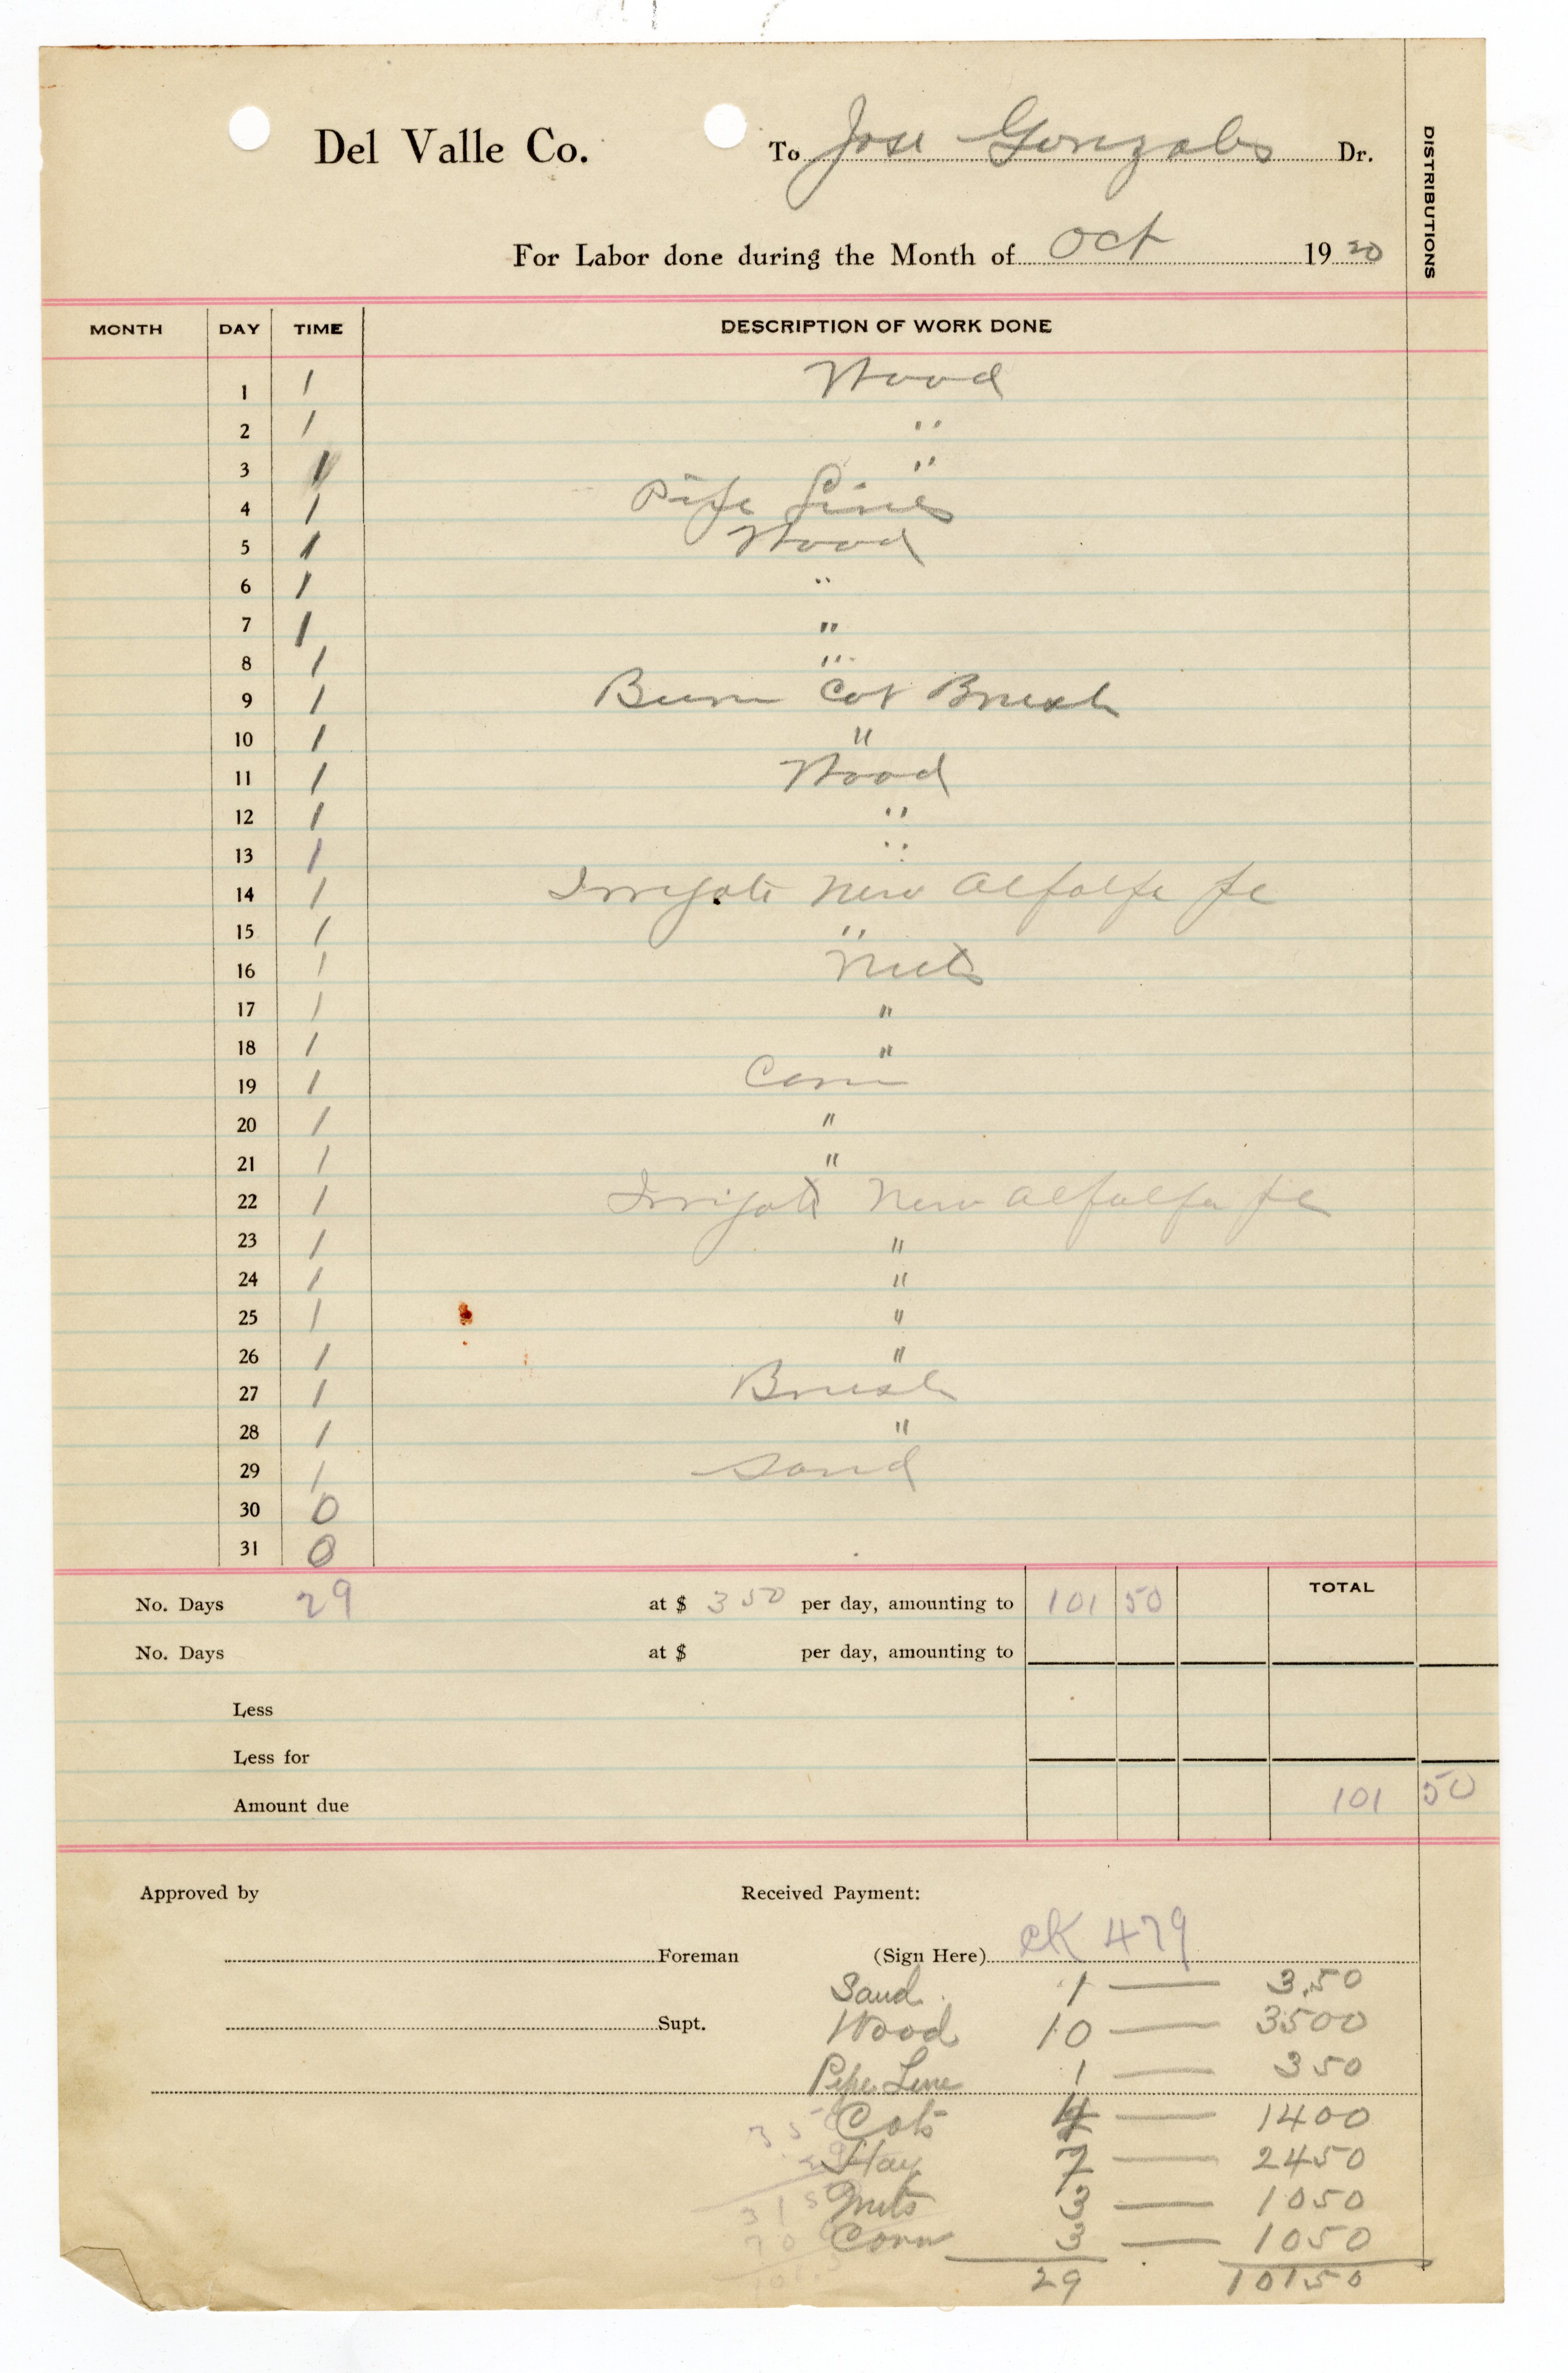 Del Valle Co. To Jose Gonzales Dr.
DISTRIBUTIONS
For Labor done during the Month of Oct 1920
MONTH DAY TIME DESCRIPTION OF WORK DONE
1 1 Wood
2 1 "
3 1 "
4 1 Pipe Lines
5 1 Wood
6 1 "
7 1 "
8 1 "
9 1 Burn Cot Brush
10 1 "
11 1 Wood
12 1 "
13 1 "
14 1 Irrigate New Alfalfa
15 1 "
16 1 Nuts
17 1 "
18 1 "
19 1 Corn
20 1 "
21 1 "
22 1 Irrigate New Alfalfa
23 1 "
24 1 "
25 1 "
26 1 "
27 1 Brush
28 1 "
29 1 Sand
30 0
31 0
TOTAL
No. Days 29 at $ 3 50 per day, amounting to 101 50
No. Days at $ per day, amounting to
Less
Less for
Amount due 101 50
Approved by Received Payment:
Foreman (Sign Here) CK 479
Sand 1 — 3.50
Supt. Wood 10 — 3500
Pipe Line 1 — 350
Cots 4 — 1400
Hay 7 — 2450
Nuts 3 — 1050
Corn 3 — 1050
29 10150